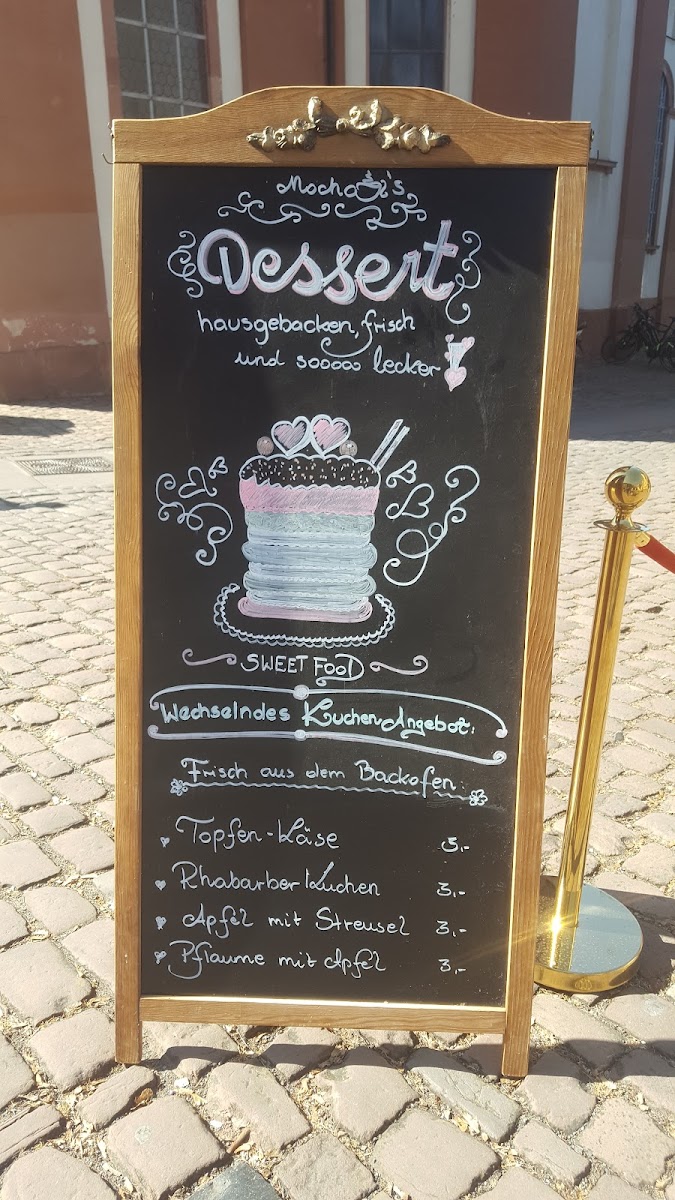 Mocha's
Dessert
hausgebacken, frisch
und sooooo lecker!
SWEET FOOD
Wechselndes Kuchen Angebot:
Frisch aus dem Backofen:
Topfen-Käse 3,-
Rhabarber Kuchen 3,-
Apfel mit Streusel 3,-
Pflaume mit Apfel 3,-